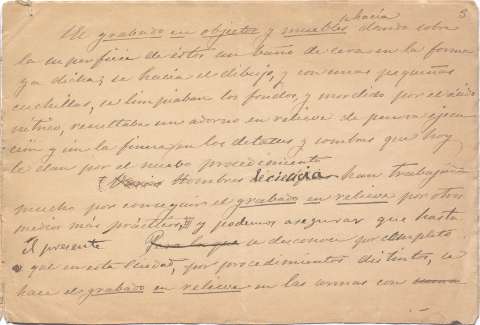 se hacía 5
El grabado en objetos y muebles dando sobre
la superficie de éstos un baño de cera en la forma
ya dicha; se hacía el dibujo, y con unas pequeñas
cuchillas, se limpiaban los fondos, y mordido por el ácido
nítrico, resultaba un adorno en relieve de penosa ejecu
ción y sin la finura en los detalles y sombras que hoy
le dan por el nuevo procedimiento
Hombres de ciencia han trabajado
mucho por conseguir el grabado en relieve por otros
medios más prácticos, y podemos asegurar que hasta
el presente Para lo que se desconoce por completo
que en esta Ciudad, por procedimientos distintos, se
hace el grabado en relieve en las armas con